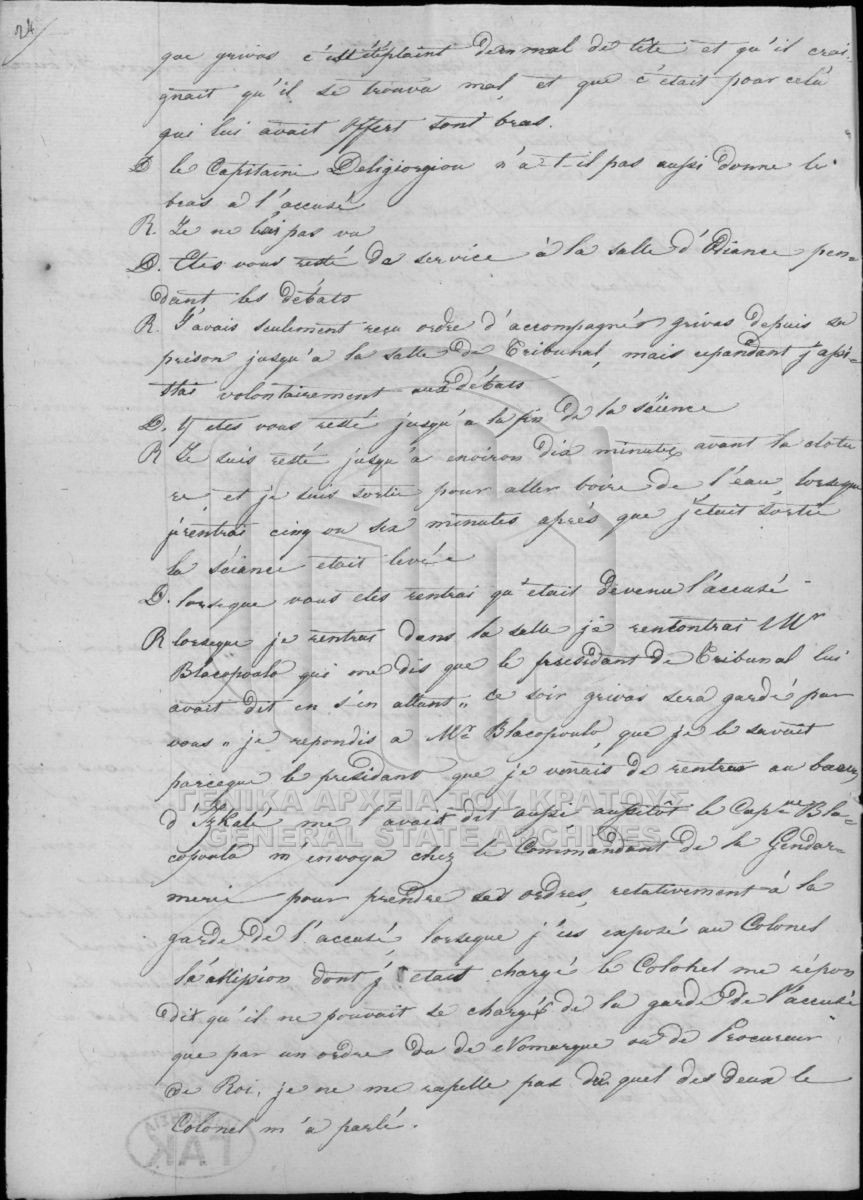 24
que grivas c'est plaint d'en mal de tête et qu'il crai-
gnait qu'il se trouva mal, et que c'était pour celà
qui lui avait offert sont bras.
D le Capitaine Deligiorgiou n'a-t-il pas aussi donne le
bras a l'accusé
R. Je ne l'ai pas vu
D. Etes vous resté de service à la salle d'Odiance pen-
dant les débats
R. J'avais seulement reçu ordre d'accompagnér grivas depuis sa
prison jusqu'a la salle du Tribunal, mais cepandant j'assi-
stai volontairement aux débats
D. y etes vous resté jusqu'a la fin de la séience
R Je suis resté jusqu'a environ dix minutes avant la clotu
re et je suis sortie pour aller boire de l'eau, lorseque
j'rentrai cinq ou six minutes après que j'était sortie
la séiance etait levée
D. lorseque vous etes rentrai qu'était devenu l'accusé
R lorseque je rentrai dans la salle je rencontrai Mr
Blacopoulo qui me dis que le president de Tribunal lui
avait dit en s'en allant „ ce soir grivas sera gardé par
vous „ je repondis a Mr Blacopoulo, que je le savait
parceque le president que je venais de rentrer au bazar
d me l'avait dit aussi aussitôt le Capne Bla-
copoulo m'envoya chez le Commandant de la Gendar-
merie pour prendre ses ordres, relativement à la
garde de l'accusé, lorseque j'us exposé au Colonel
la mission dont j'était chargé le Colonel me répon
dit qu'il ne pouvait se chargér de la garde de l'accusé
que par un ordre du de Nomarque ou de Procureur
de Roi, je ne me rapelle pas du quel des deux le
Colonel m'a parlé.
ΓΕΝΙΚΑ ΑΡΧΕΙΑ ΤΟΥ ΚΡΑΤΟΥΣ
GENERAL STATE ARCHIVES
ΓΑΚ